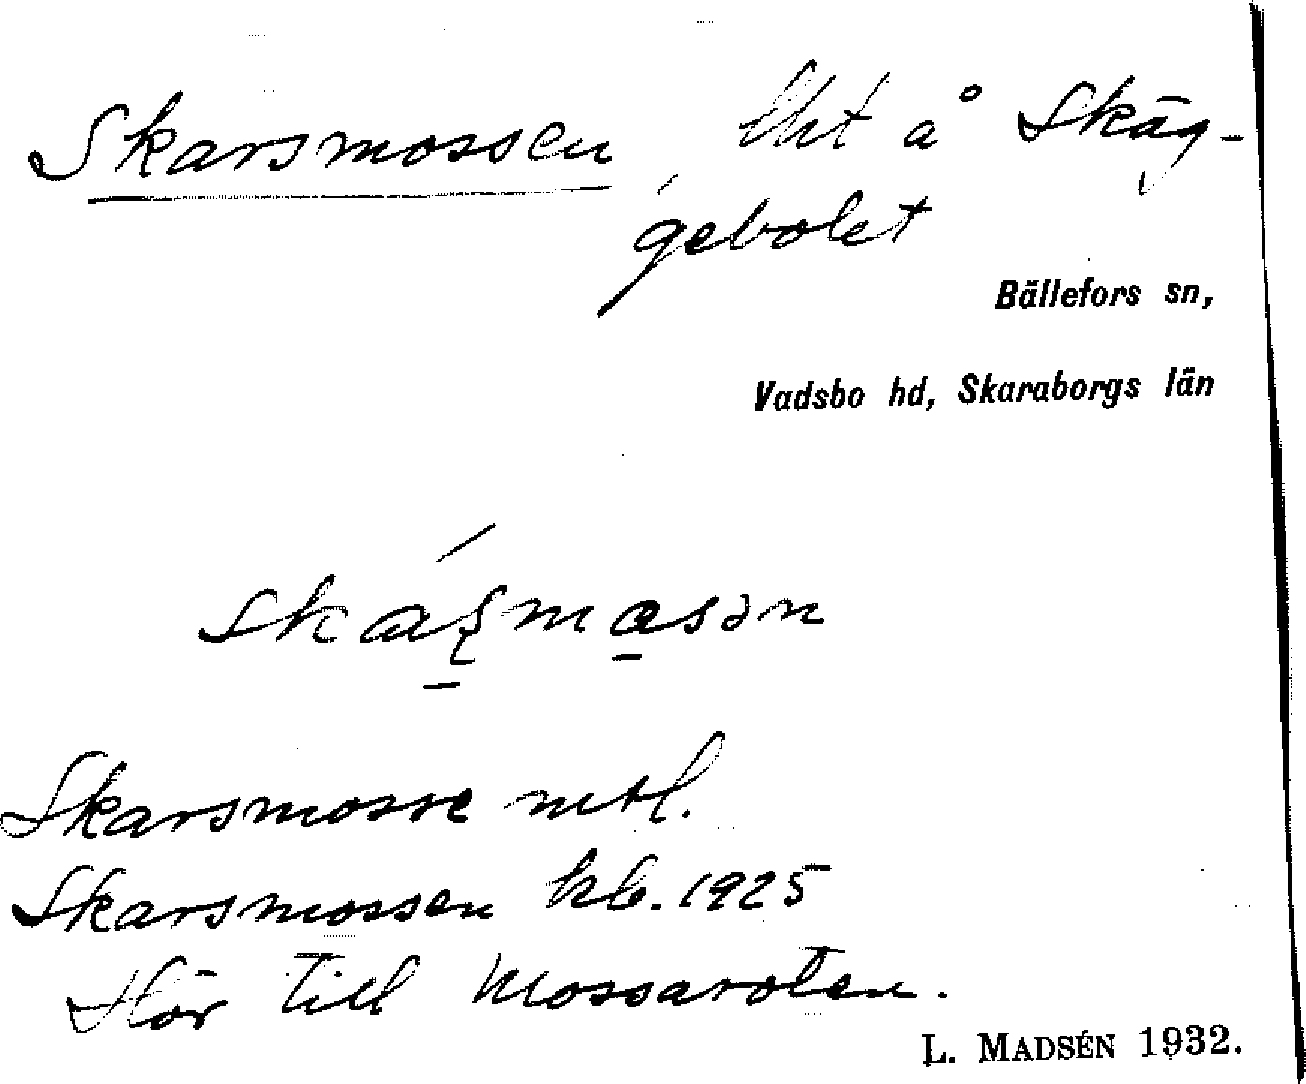 Skarsmossen lht å Skäg-
gebolet
Bällefors sn,
Vadsbo hd, Skaraborgs län
Skarsmosse mtl.
Skarsmossen kb. 1925
Hör till Mossaroten.
L. MADSÉN 1932.